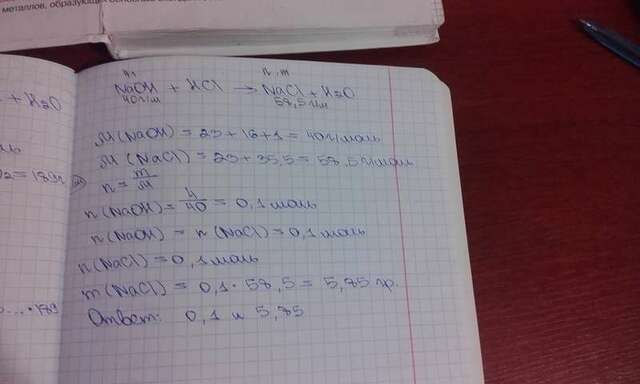 металлов, образующи основные оксиды
m n, m
NaOH + HCl → NaCl + H2O
40г/м 58,5г/м
M (NaOH) = 23 + 16 + 1 = 40 г/моль
M (NaCl) = 23 + 35,5 = 58,5 г/моль
n = m/M
n (NaOH) = 4/40 = 0,1 моль
n (NaOH) = n (NaCl) = 0,1 моль
n (NaCl) = 0,1 моль
m (NaCl) = 0,1 · 58,5 = 5,85 гр.
Ответ: 0,1 и 5,85
+ H2O
= 189г
· 189